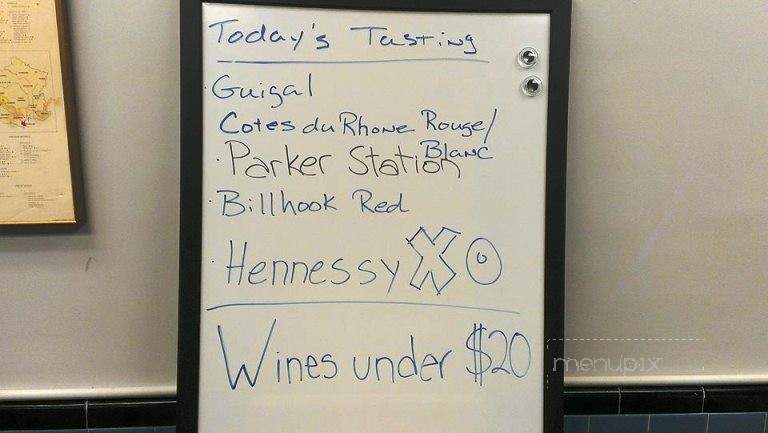 Today's Tasting
· Guigal
Cotes du Rhone Rouge/
Blanc
· Parker Station
· Billhook Red
· Hennessy XO
Wines under $20
menupix